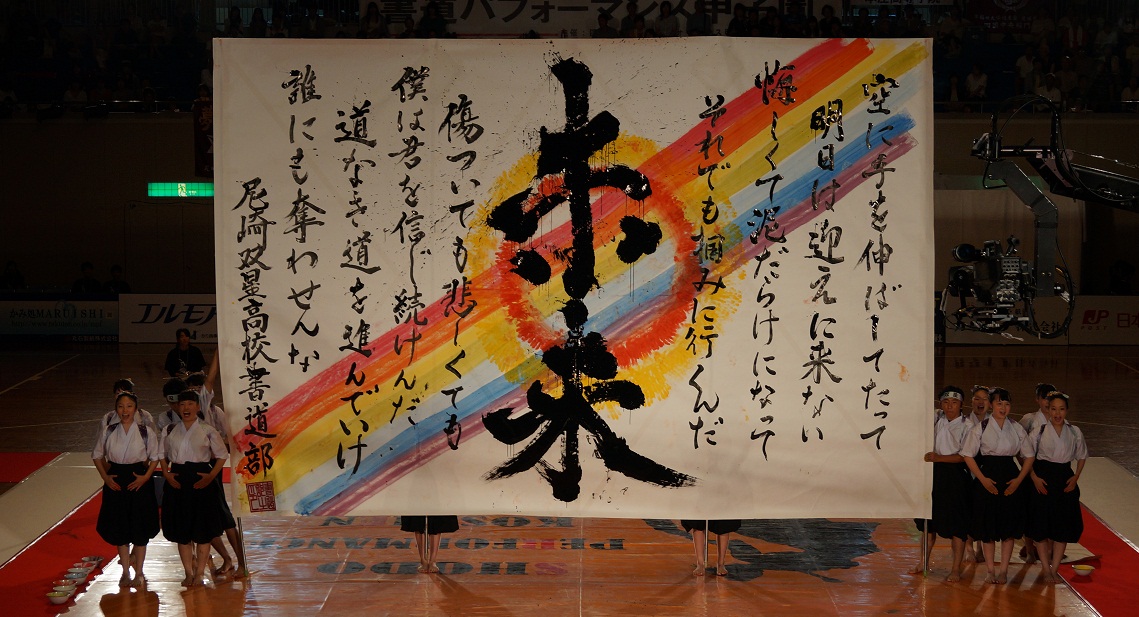 書道パフォーマンス甲子園
空に手を伸ばしてたって
明日は迎えに来ない
悔しくて泥だらけになって
それでも掴みに行くんだ
未来
傷ついても悲しくても
僕は君を信じ続けんだ
道なき道を進んでいけ
誰にも奪わせんな
尼崎双星高校書道部
かみ屋MARUISHI
エルモ
JP
POST
日本
会社
SHODO
PERFORMANCE
KOSHIEN